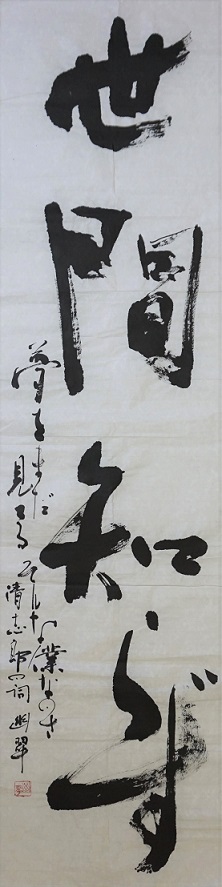 世間知らず
夢をまだ
見てる
そんな僕なのさ
清志郎詞